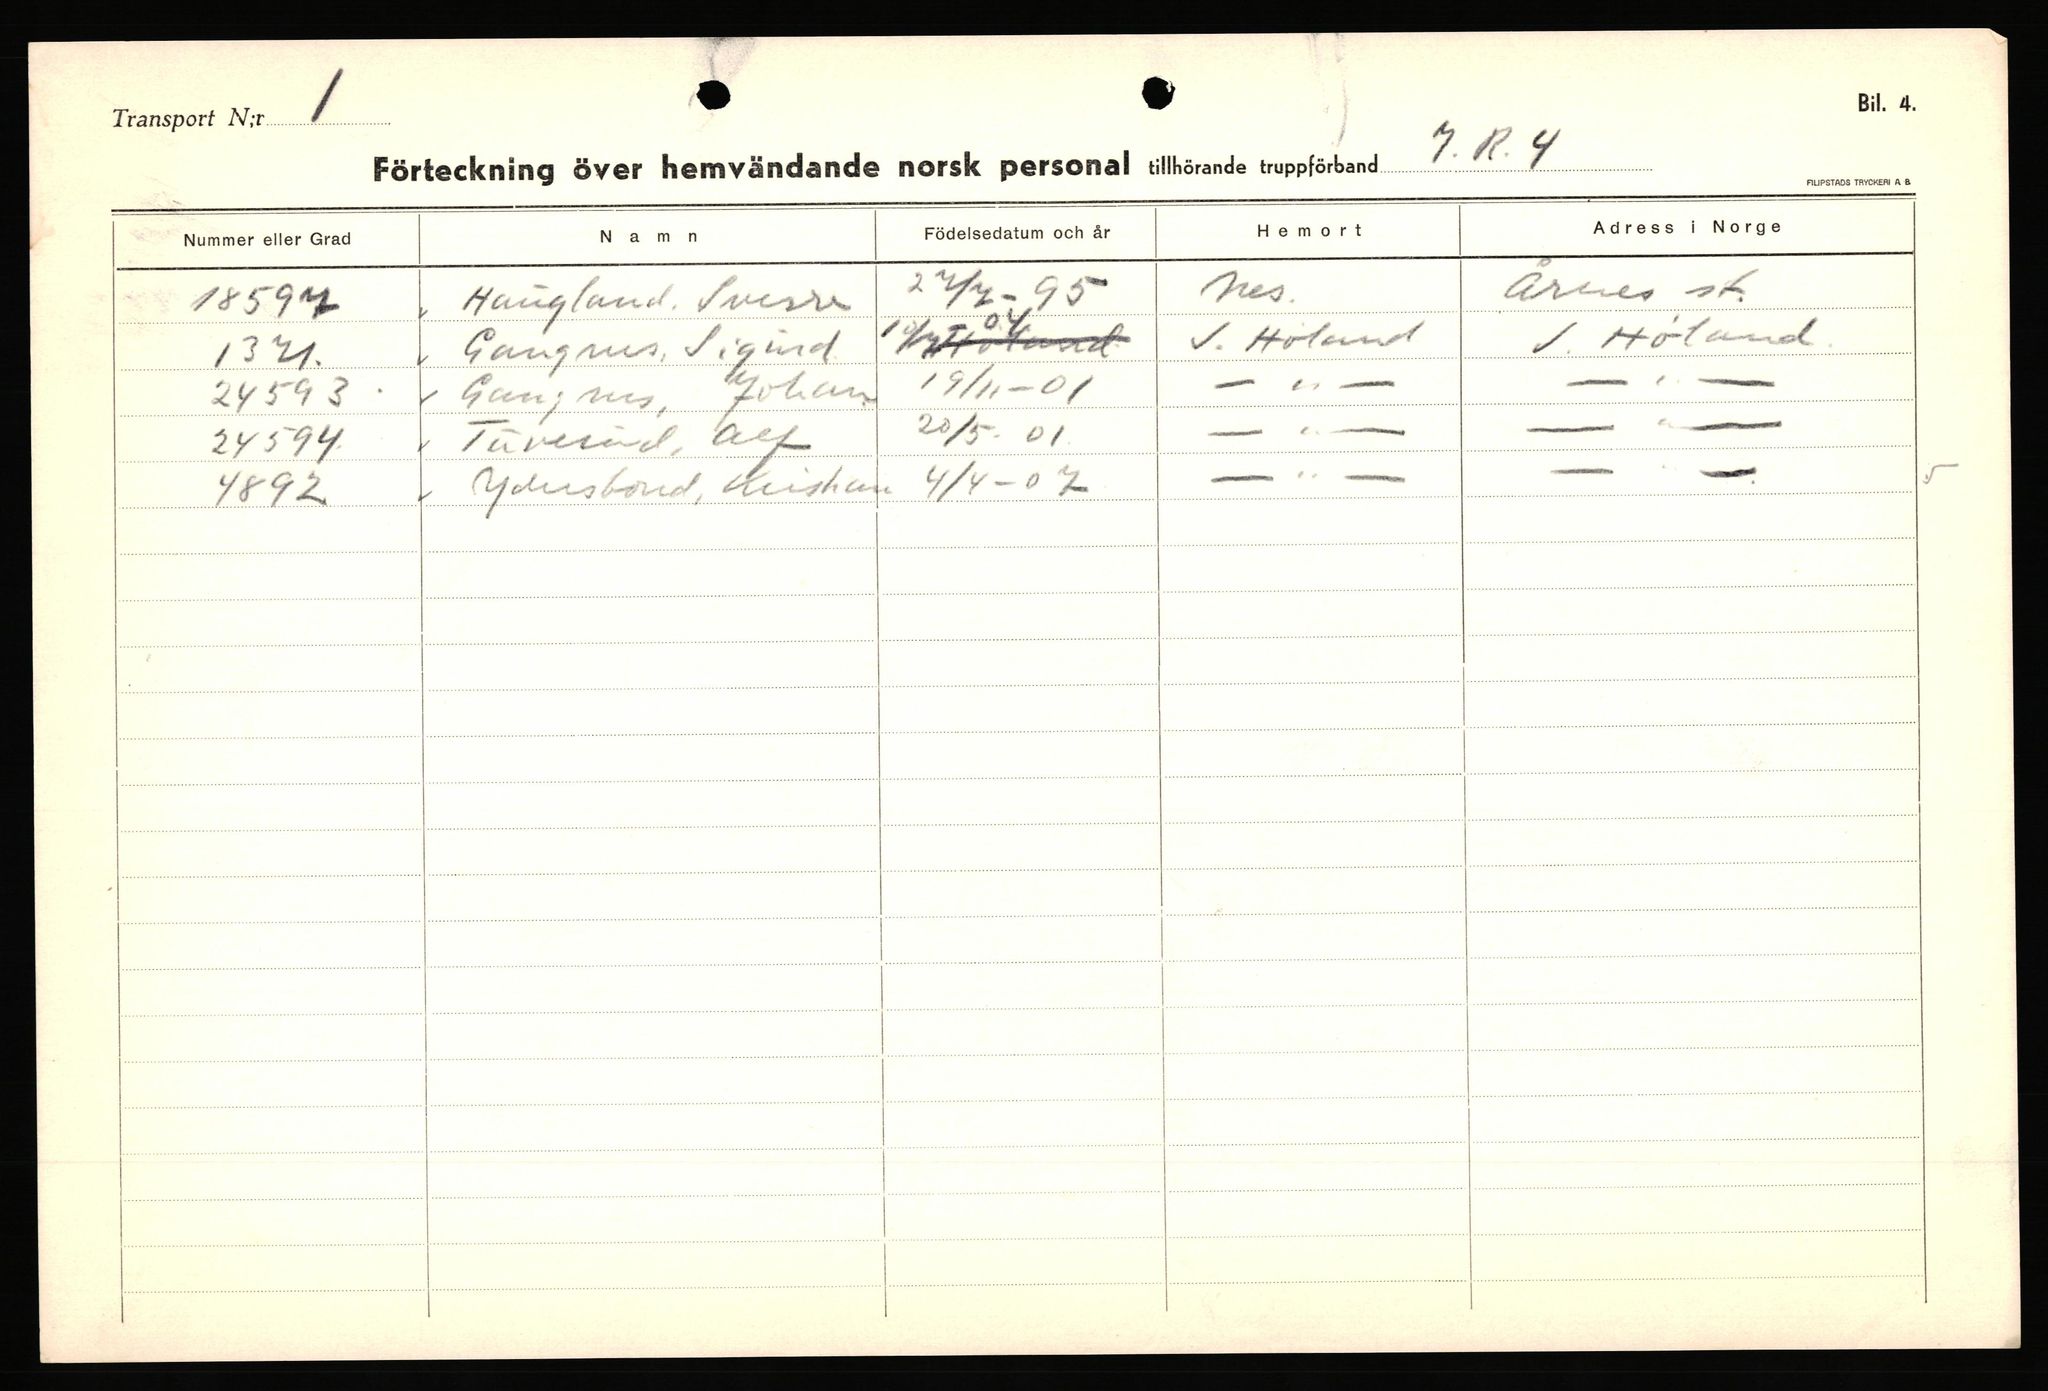 Transport N;r 1
Bil. 4.
Förteckning över hemvändande norsk personal tillhörande truppförband J. R. 4
FILIPSTADS TRYCKERI A B
Nummer eller Grad Namn Födelsedatum och år Hemort Adress i Norge
18597 Haugland, Sverre 27/7 - 95 Nes. Årnes st.
1371. Gangnes, Sigurd 10/7 04 S. Höland S. Höland.
24593 Gangnes, Johan 19/11 - 01 — " — — " —
24594. Alf 20/5 - 01. — " — — " —
4892 Kristian 4/4 - 07 — " — — " — 5